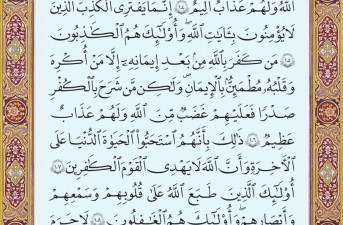 ٱللَّهُ وَلَهُمْ عَذَابٌ أَلِيمٌ ١٠٤ إِنَّمَا يَفْتَرِى ٱلْكَذِبَ ٱلَّذِينَ
لَا يُؤْمِنُونَ بِـَٔايَٰتِ ٱللَّهِ ۖ وَأُو۟لَٰٓئِكَ هُمُ ٱلْكَٰذِبُونَ
١٠٥ مَن كَفَرَ بِٱللَّهِ مِنۢ بَعْدِ إِيمَٰنِهِۦٓ إِلَّا مَنْ أُكْرِهَ
وَقَلْبُهُۥ مُطْمَئِنٌّۢ بِٱلْإِيمَٰنِ وَلَٰكِن مَّن شَرَحَ بِٱلْكُفْرِ
صَدْرًا فَعَلَيْهِمْ غَضَبٌ مِّنَ ٱللَّهِ وَلَهُمْ عَذَابٌ
عَظِيمٌ ١٠٦ ذَٰلِكَ بِأَنَّهُمُ ٱسْتَحَبُّوا۟ ٱلْحَيَوٰةَ ٱلدُّنْيَا عَلَى
ٱلْـَٔاخِرَةِ وَأَنَّ ٱللَّهَ لَا يَهْدِى ٱلْقَوْمَ ٱلْكَٰفِرِينَ ١٠٧
أُو۟لَٰٓئِكَ ٱلَّذِينَ طَبَعَ ٱللَّهُ عَلَىٰ قُلُوبِهِمْ وَسَمْعِهِمْ
وَأَبْصَٰرِهِمْ ۖ وَأُو۟لَٰٓئِكَ هُمُ ٱلْغَٰفِلُونَ ١٠٨ لَا جَرَمَ